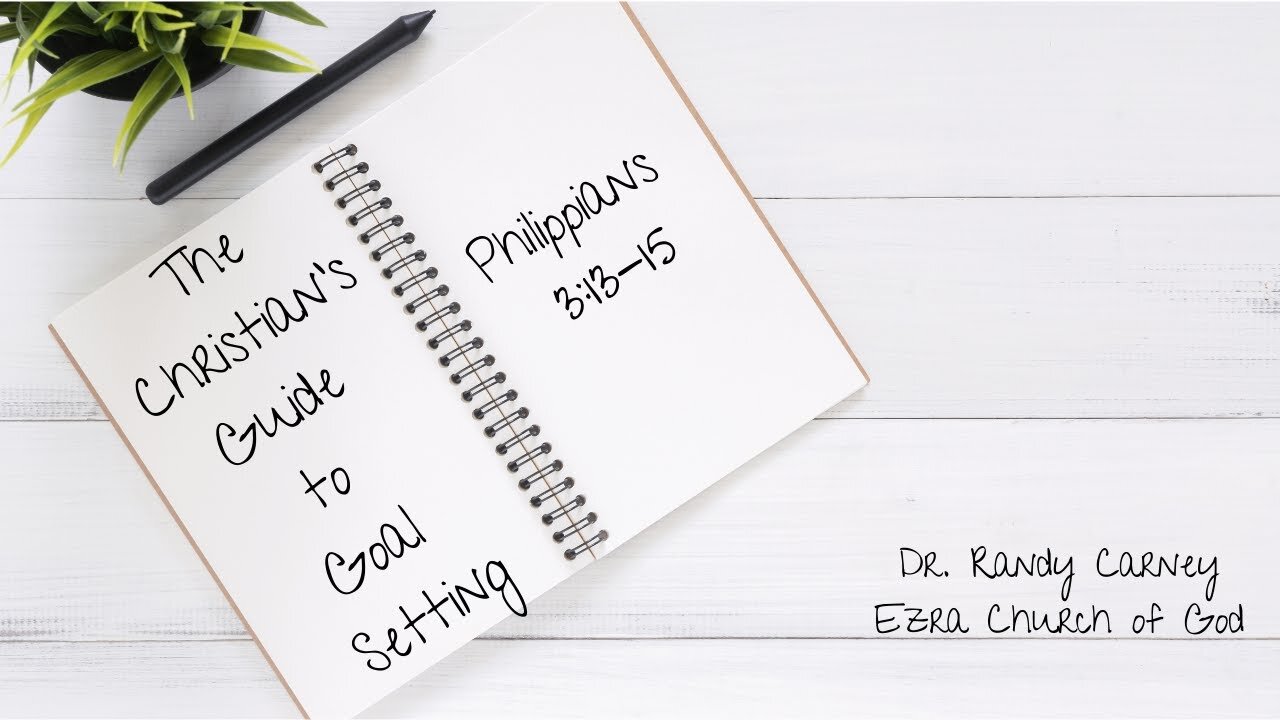 The
Christian's
Guide
to
Goal
Setting
Philippians
3:13-15
Dr. Randy Carney
Ezra Church of God